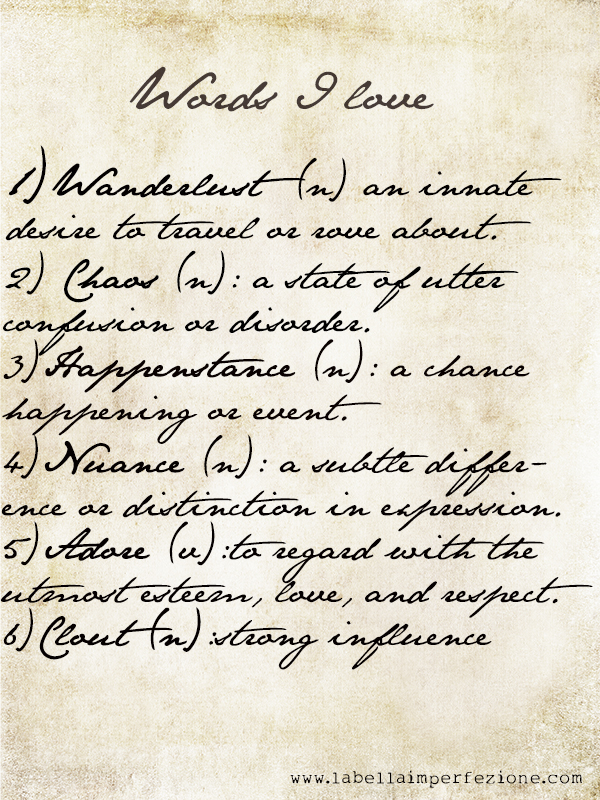 Words I love
1) Wanderlust (n) an innate
desire to travel or rove about.
2) Chaos (n): a state of utter
confusion or disorder.
3) Happenstance (n): a chance
happening or event.
4) Nuance (n): a subtle differ-
ence or distinction in expression.
5) Adore (v) :to regard with the
utmost esteem, love, and respect.
6) Clout (n) :strong influence
www.labellaimperfezione.com